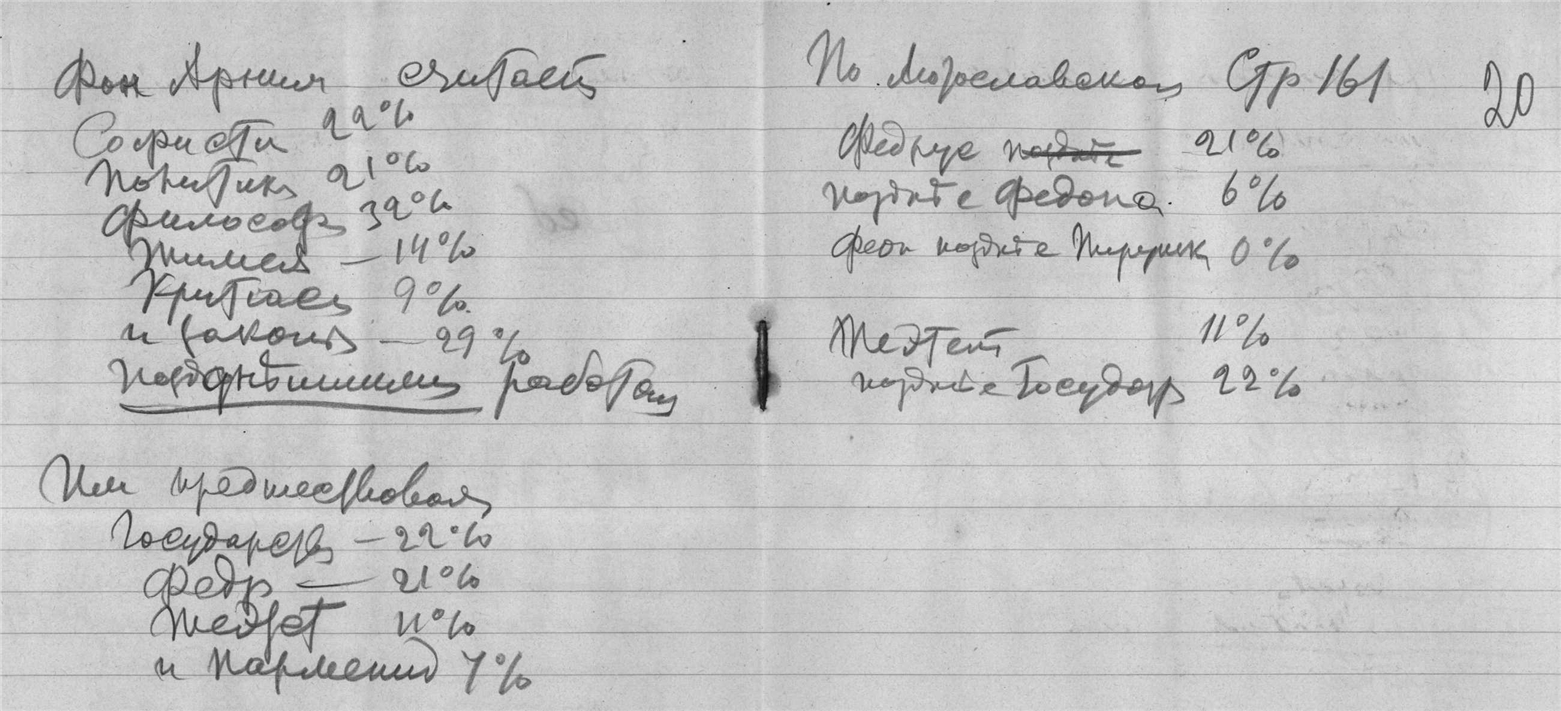 Фон Арним считает
Софиста 22%
Политика 21%
Философа 32%
Тимея — 14%
Крития 9%
и Законы — 29%
позднейшими работами
Им предшествовали
Государство — 22%
Федр — 21%
Теэтет 11%
и Парменид 7%
По Стр 161
20
Федрус 21%
позднее Федона 6%
позднее 0%
Теэтет 11%
позднее Государ 22%